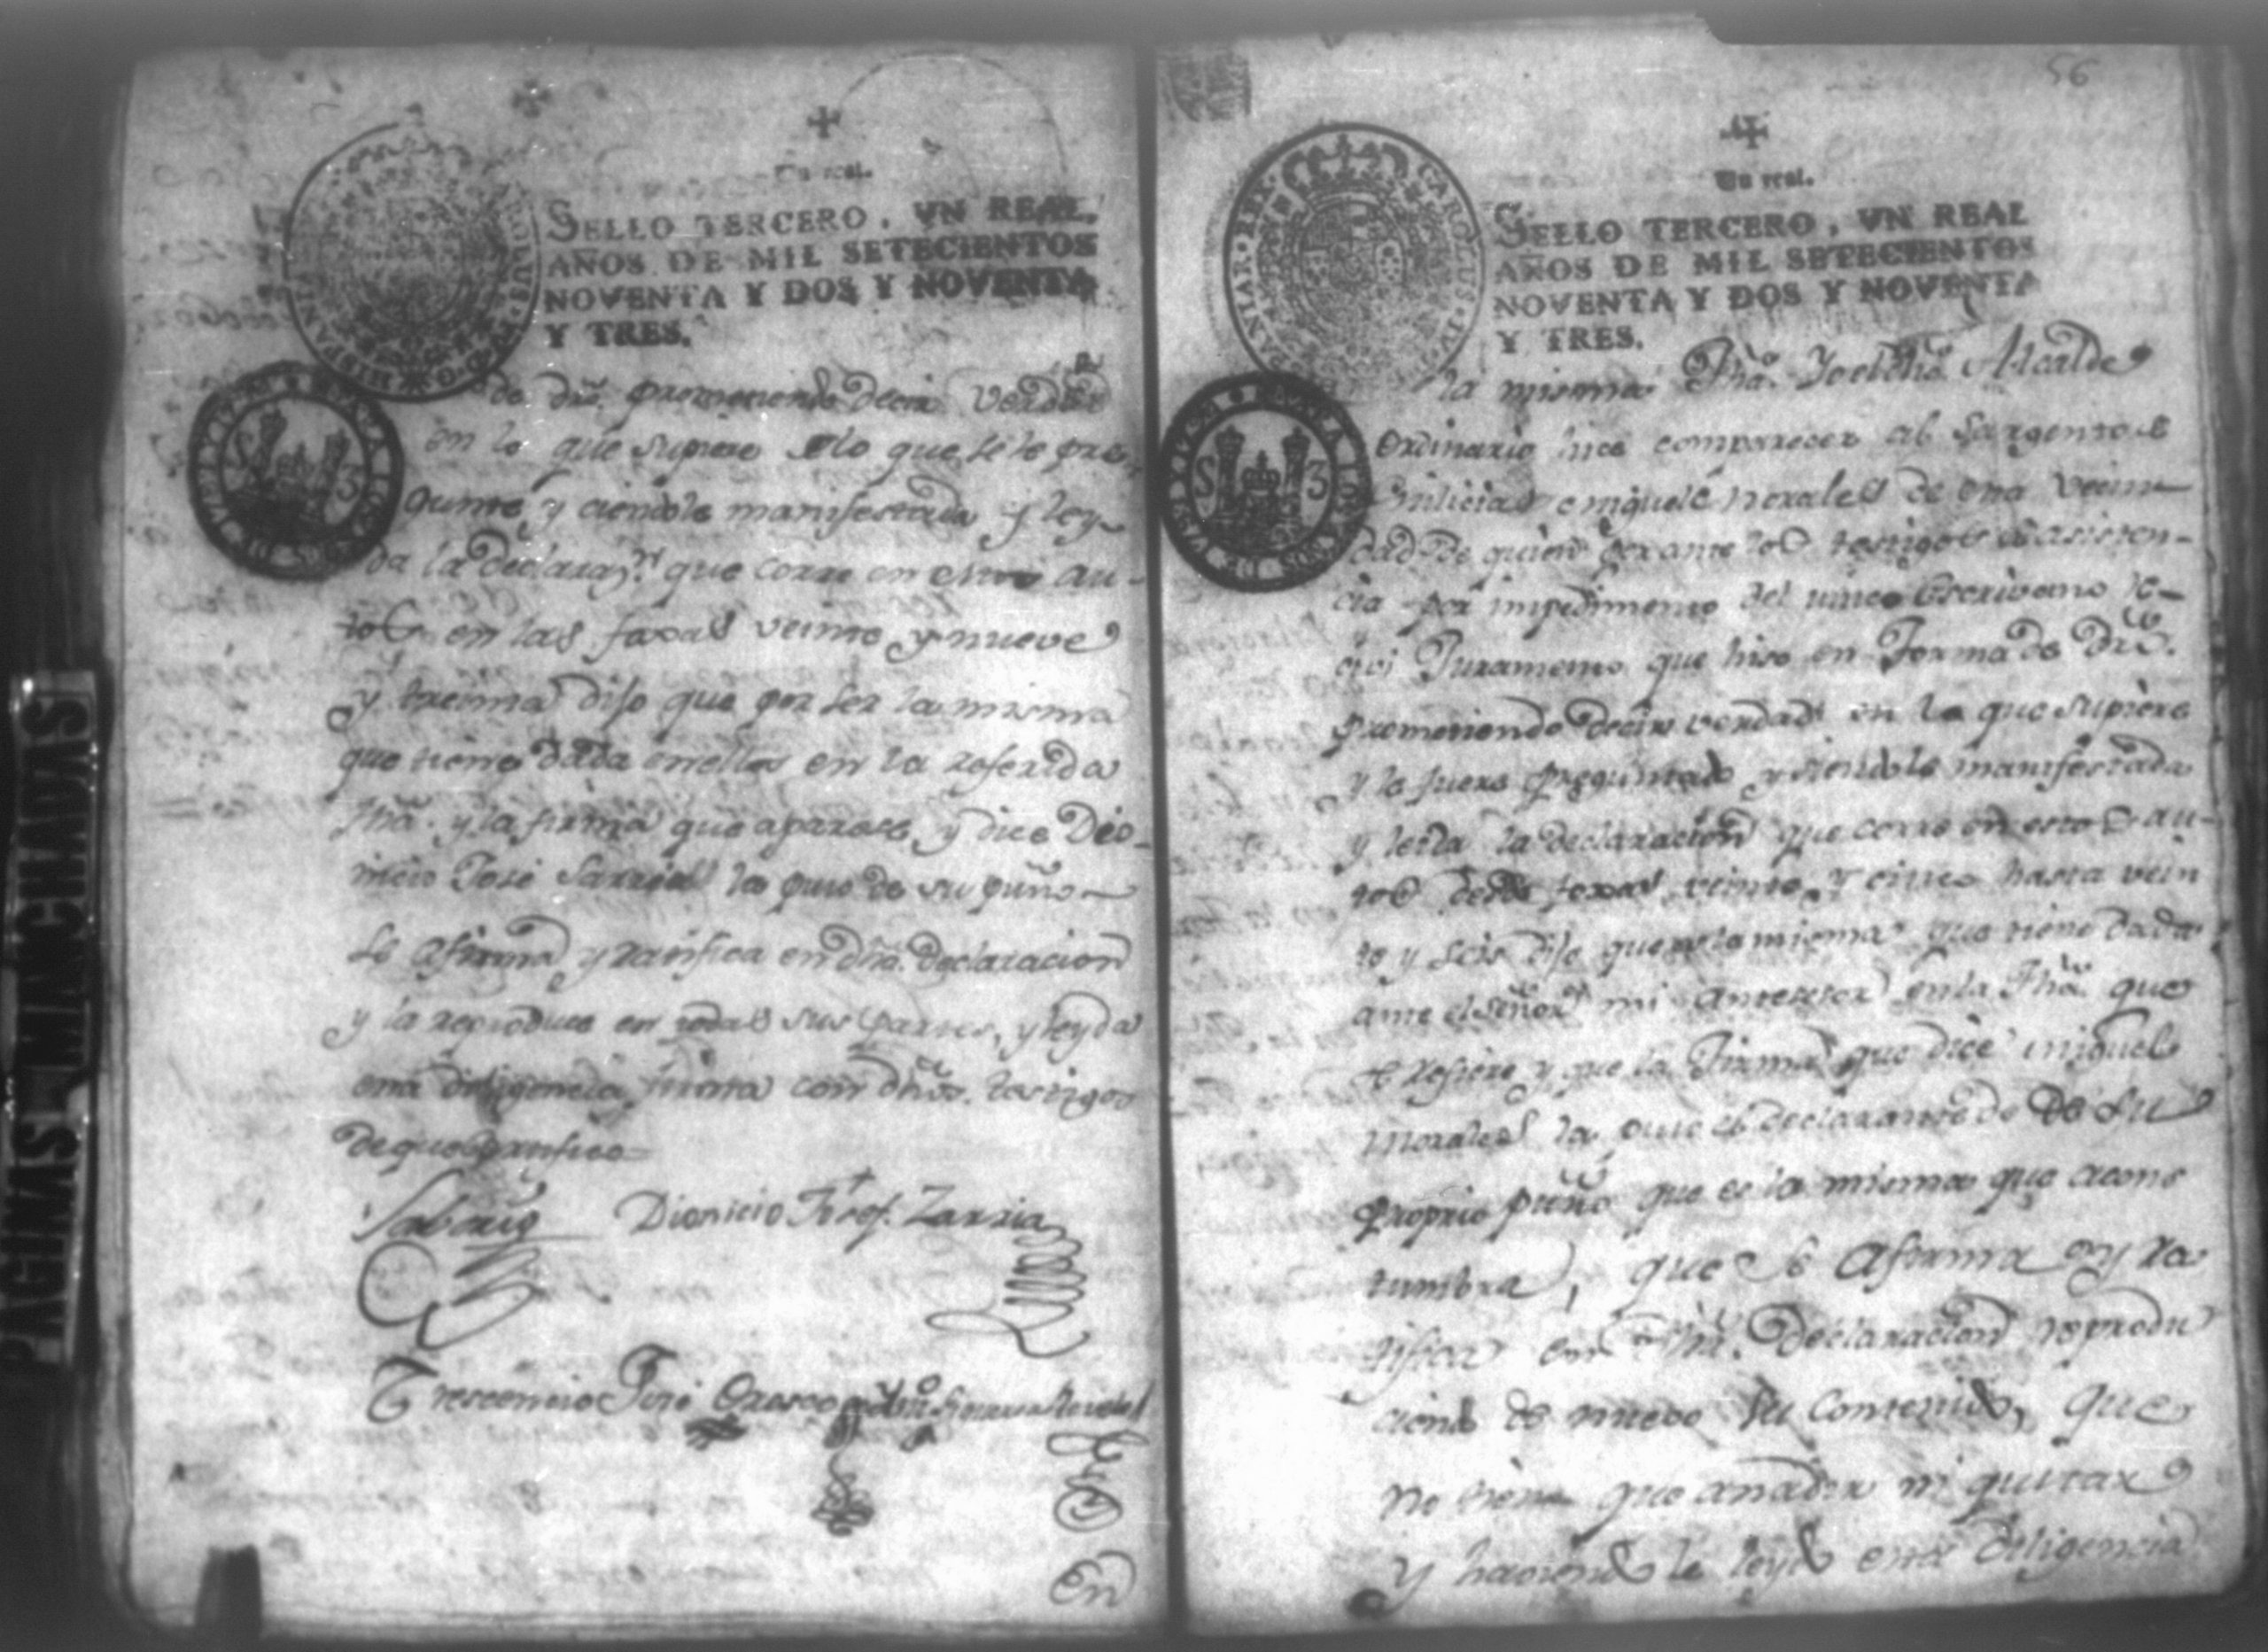 Un real.
SELLO TERCERO, VN REAL,
AÑOS DE MIL SETECIENTOS
NOVENTA Y DOS Y NOVENTA
Y TRES.
de dro. prometiendo decir verdad
en lo que supiere lo que se le pre
gunte, y ciendole manifestada y ley
da la declarazn. que corre en estos au-
tos en las foxas veinte y nueve
y treinta dijo que por ser la misma
que tiene dada en ellos en la referida
fha. y la firma que aparese, y dice Dio-
nicio José Sarria la puso de su puño
se afirma y ratifica en dha. declaracion
y la reproduce en todas sus partes, y leyda
esta diligencia, firma con dhos. testigos
de que certifico=
Dionicio Josef. Zarria
Crescencio José Orosco
En
PAGINAS MANCHADAS
56
Un real.
SELLO TERCERO, VN REAL
AÑOS DE MIL SETECIENTOS
NOVENTA Y DOS Y NOVENTA
Y TRES.
CAROLUS IV
S 3
la misma Fha. Yo el dho. Alcalde
ordinario hice comparecer al Sargento de
milicias miguel morales de esta vecin
dad de quien por ante los testigos de asisten-
cia por impedimento del unico Escrivano re-
civi Juramento que hiso en Forma de Dro.
prometiendo decir verdad en lo que supiere
y le fuere preguntado y siendole manifestada
y leida la declaracion que corre en estos au-
tos desde foxas veinte y cinco hasta vein
te y seis dijo que es la misma que tiene dada
ante el señor mi antecesor en la Fha. que
se refiere y que la Firma que dice miguel
morales la puso el declarante de su
proprio puño que es la misma que acons
tumbra, que se afirma y ra
tifica en dha. declaracion reprodu
ciendo de nuevo su contenido, que
no tiene que añadir ni quitar
y haviendole leydo esta diligencia